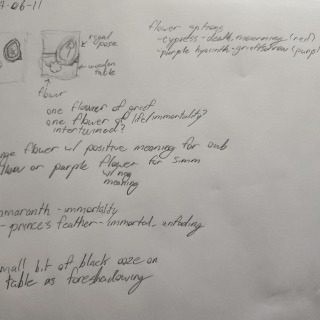 -06-11
royal
wooden
table
flower
flower options
-cypress-death, mourning (red)
-purple hyacinth-grief/sorrow (purpl
one flower of grief
one flower of life/immortality?
intertwined?
nge flower w/ positive meaning for
or purple flower for
w/ neg
meaning
maranth -immortality
- princes feather -immortal, unfading
mall bit of black ooze on
table as foreshadowing